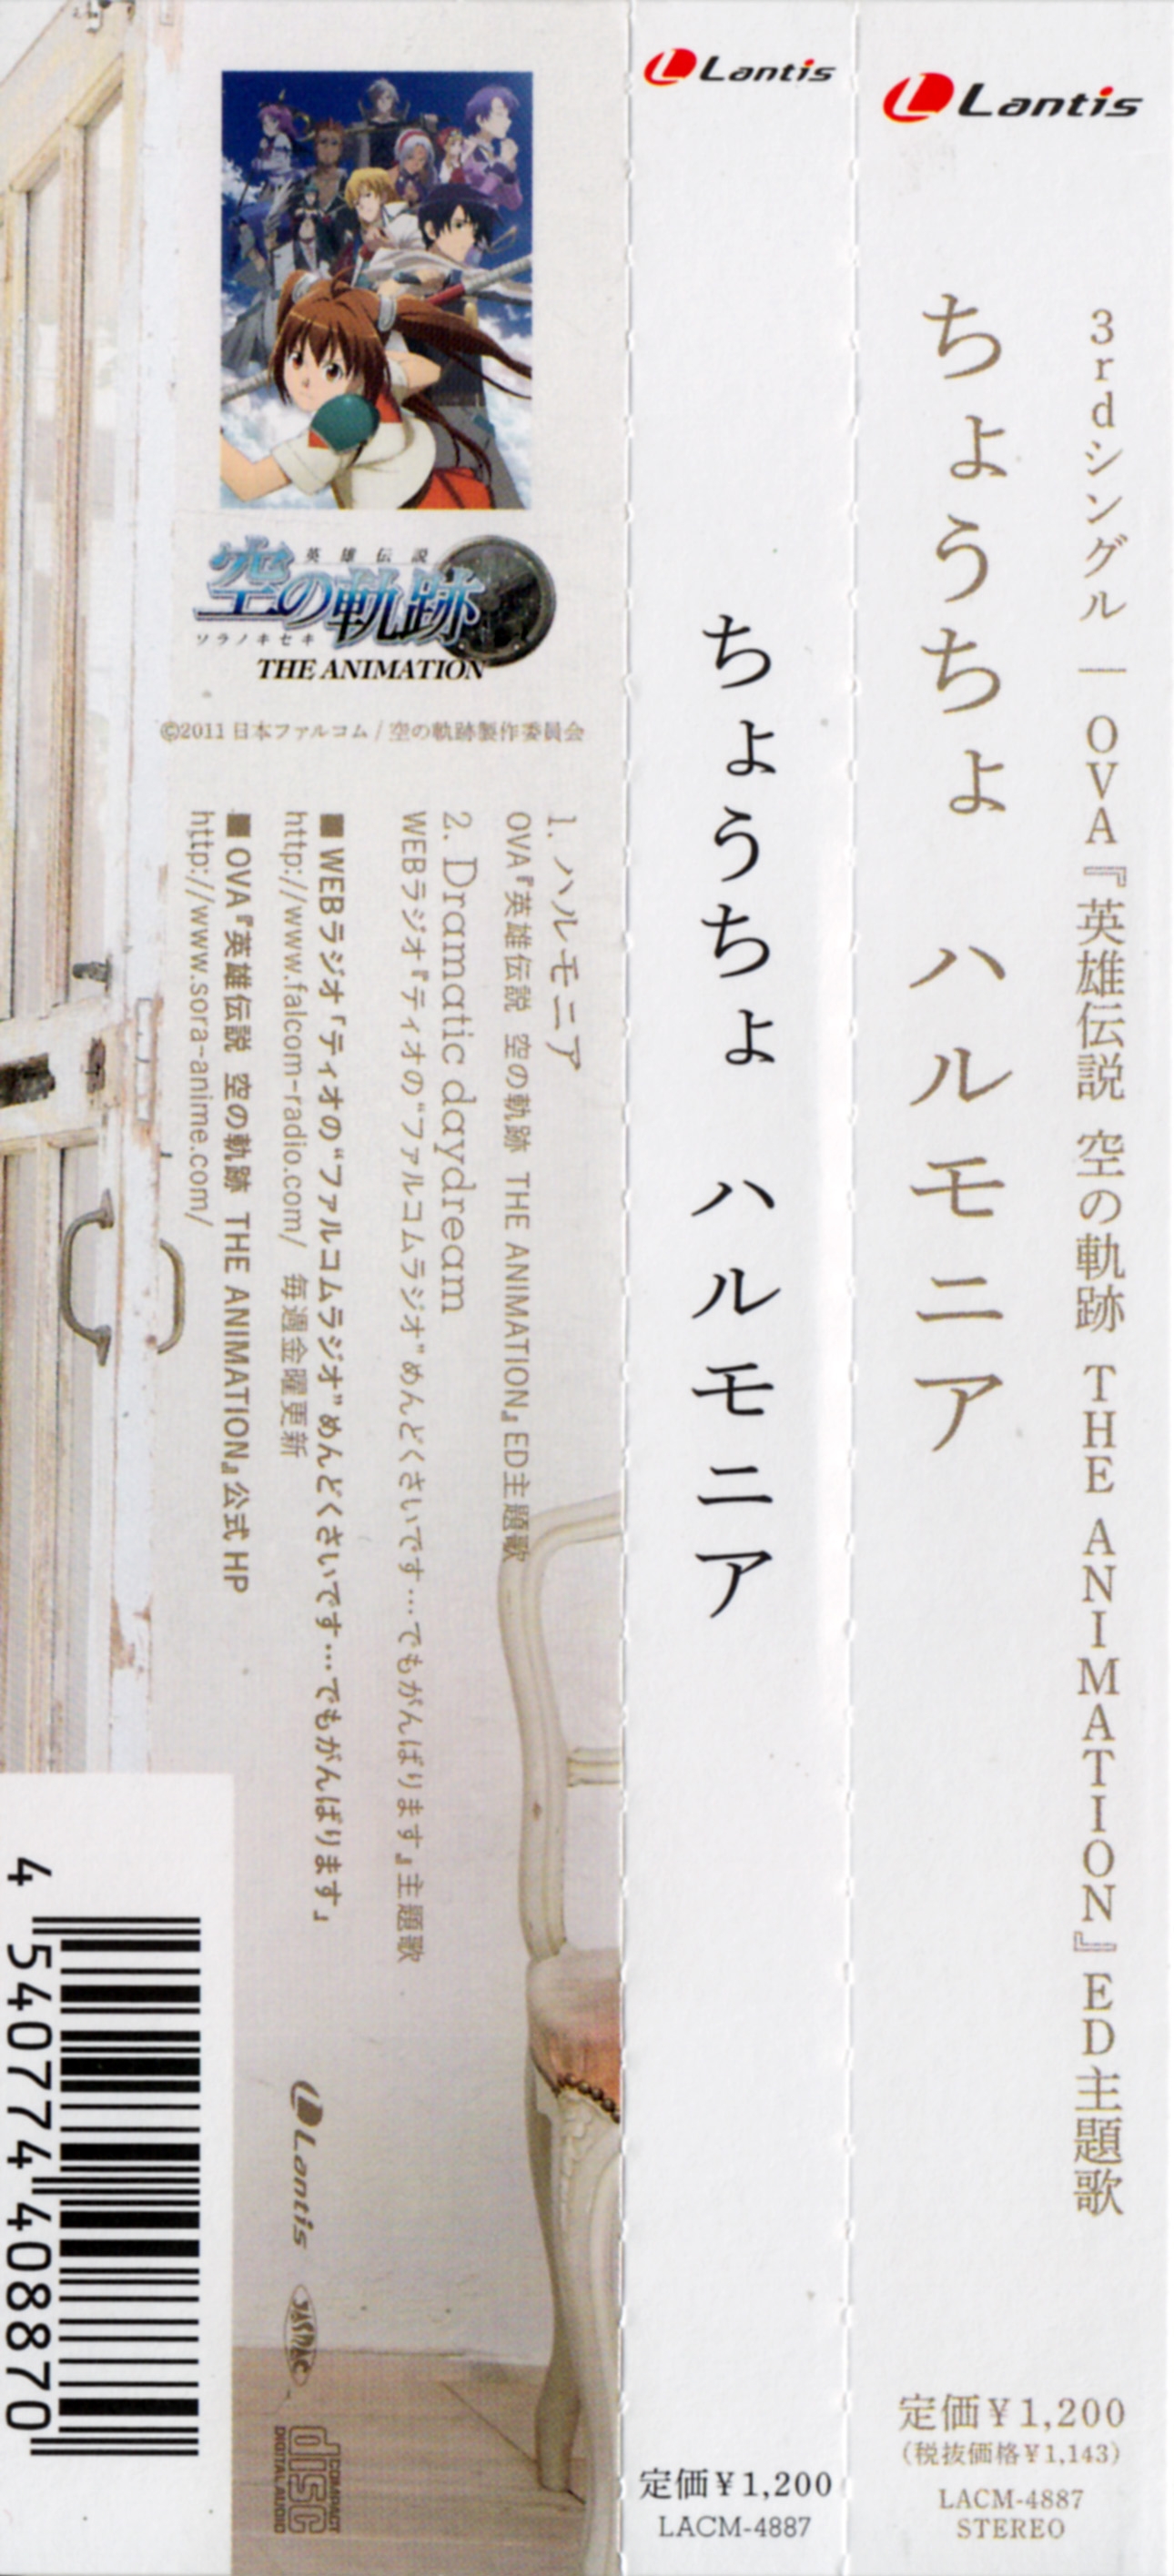 Lantis
3rdシングル | OVA『英雄伝説 空の軌跡 THE ANIMATION』ED主題歌
ちょうちょ ハルモニア
定価￥1,200
(税抜価格￥1,143)
LACM-4887
STEREO
Lantis
ちょうちょ ハルモニア
定価￥1,200
LACM-4887
英雄伝説
空の軌跡
ソラノキセキ
THE ANIMATION
©2011 日本ファルコム / 空の軌跡製作委員会
1. ハルモニア
OVA『英雄伝説 空の軌跡 THE ANIMATION』ED主題歌
2. Dramatic daydream
WEBラジオ『ティオの“ファルコムラジオ”めんどくさいです…でもがんばります』主題歌
■ WEBラジオ「ティオの“ファルコムラジオ”めんどくさいです…でもがんばります」
http://www.falcom-radio.com/ 毎週金曜更新
■ OVA『英雄伝説 空の軌跡 THE ANIMATION』公式 HP
http://www.sora-anime.com/
Lantis
JASRAC
COMPACT
disc
DIGITAL AUDIO
4 540774 408870